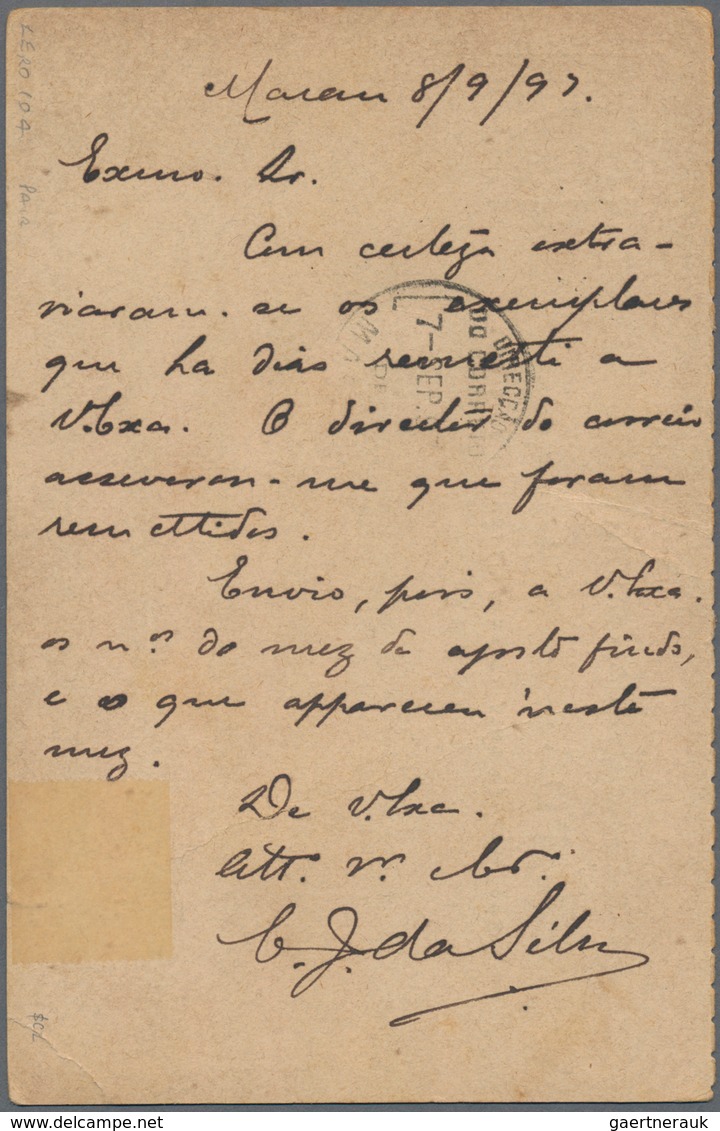 Macau 8/9/97.
Exmo. Sr.
Com certeza extra-
viaram-se os exemplares
que ha dias remetti a
V. Exa. O director do correio
asseverou-me que foram
remettidos.
Envio, pois, a V. Exa.
os n.os do mez de agosto findo,
e o que appareceu neste
mez.
De V. Exa.
Att.º V.ºr
C. J. da Silva
DIRECÇÃO
DO CORREIO
7-SEP.
DE
PAIR
gaertnerauk